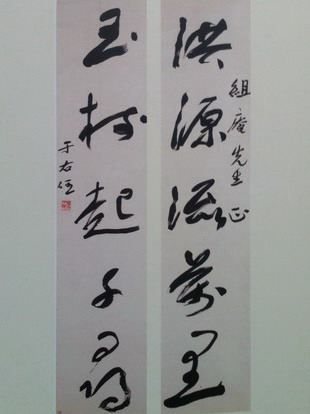 洪源流萬里
組庵先生正
玉樹起千尋
于右任